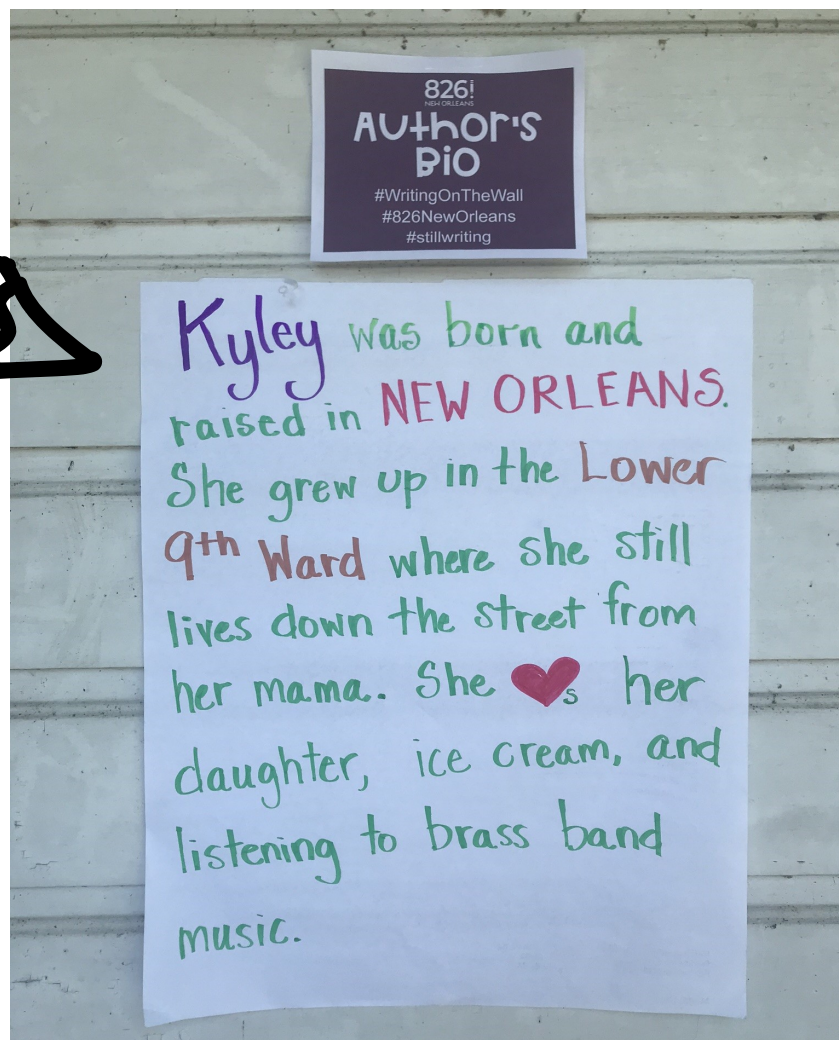 826!
NEW ORLEANS
AUthOr's
BiO
#WritingOnTheWall
#826NewOrleans
#stillwriting
Kyley was born and
raised in NEW ORLEANS.
She grew up in the Lower
9th Ward where she still
lives down the street from
her mama. She ♥s her
daughter, ice cream, and
listening to brass band
music.